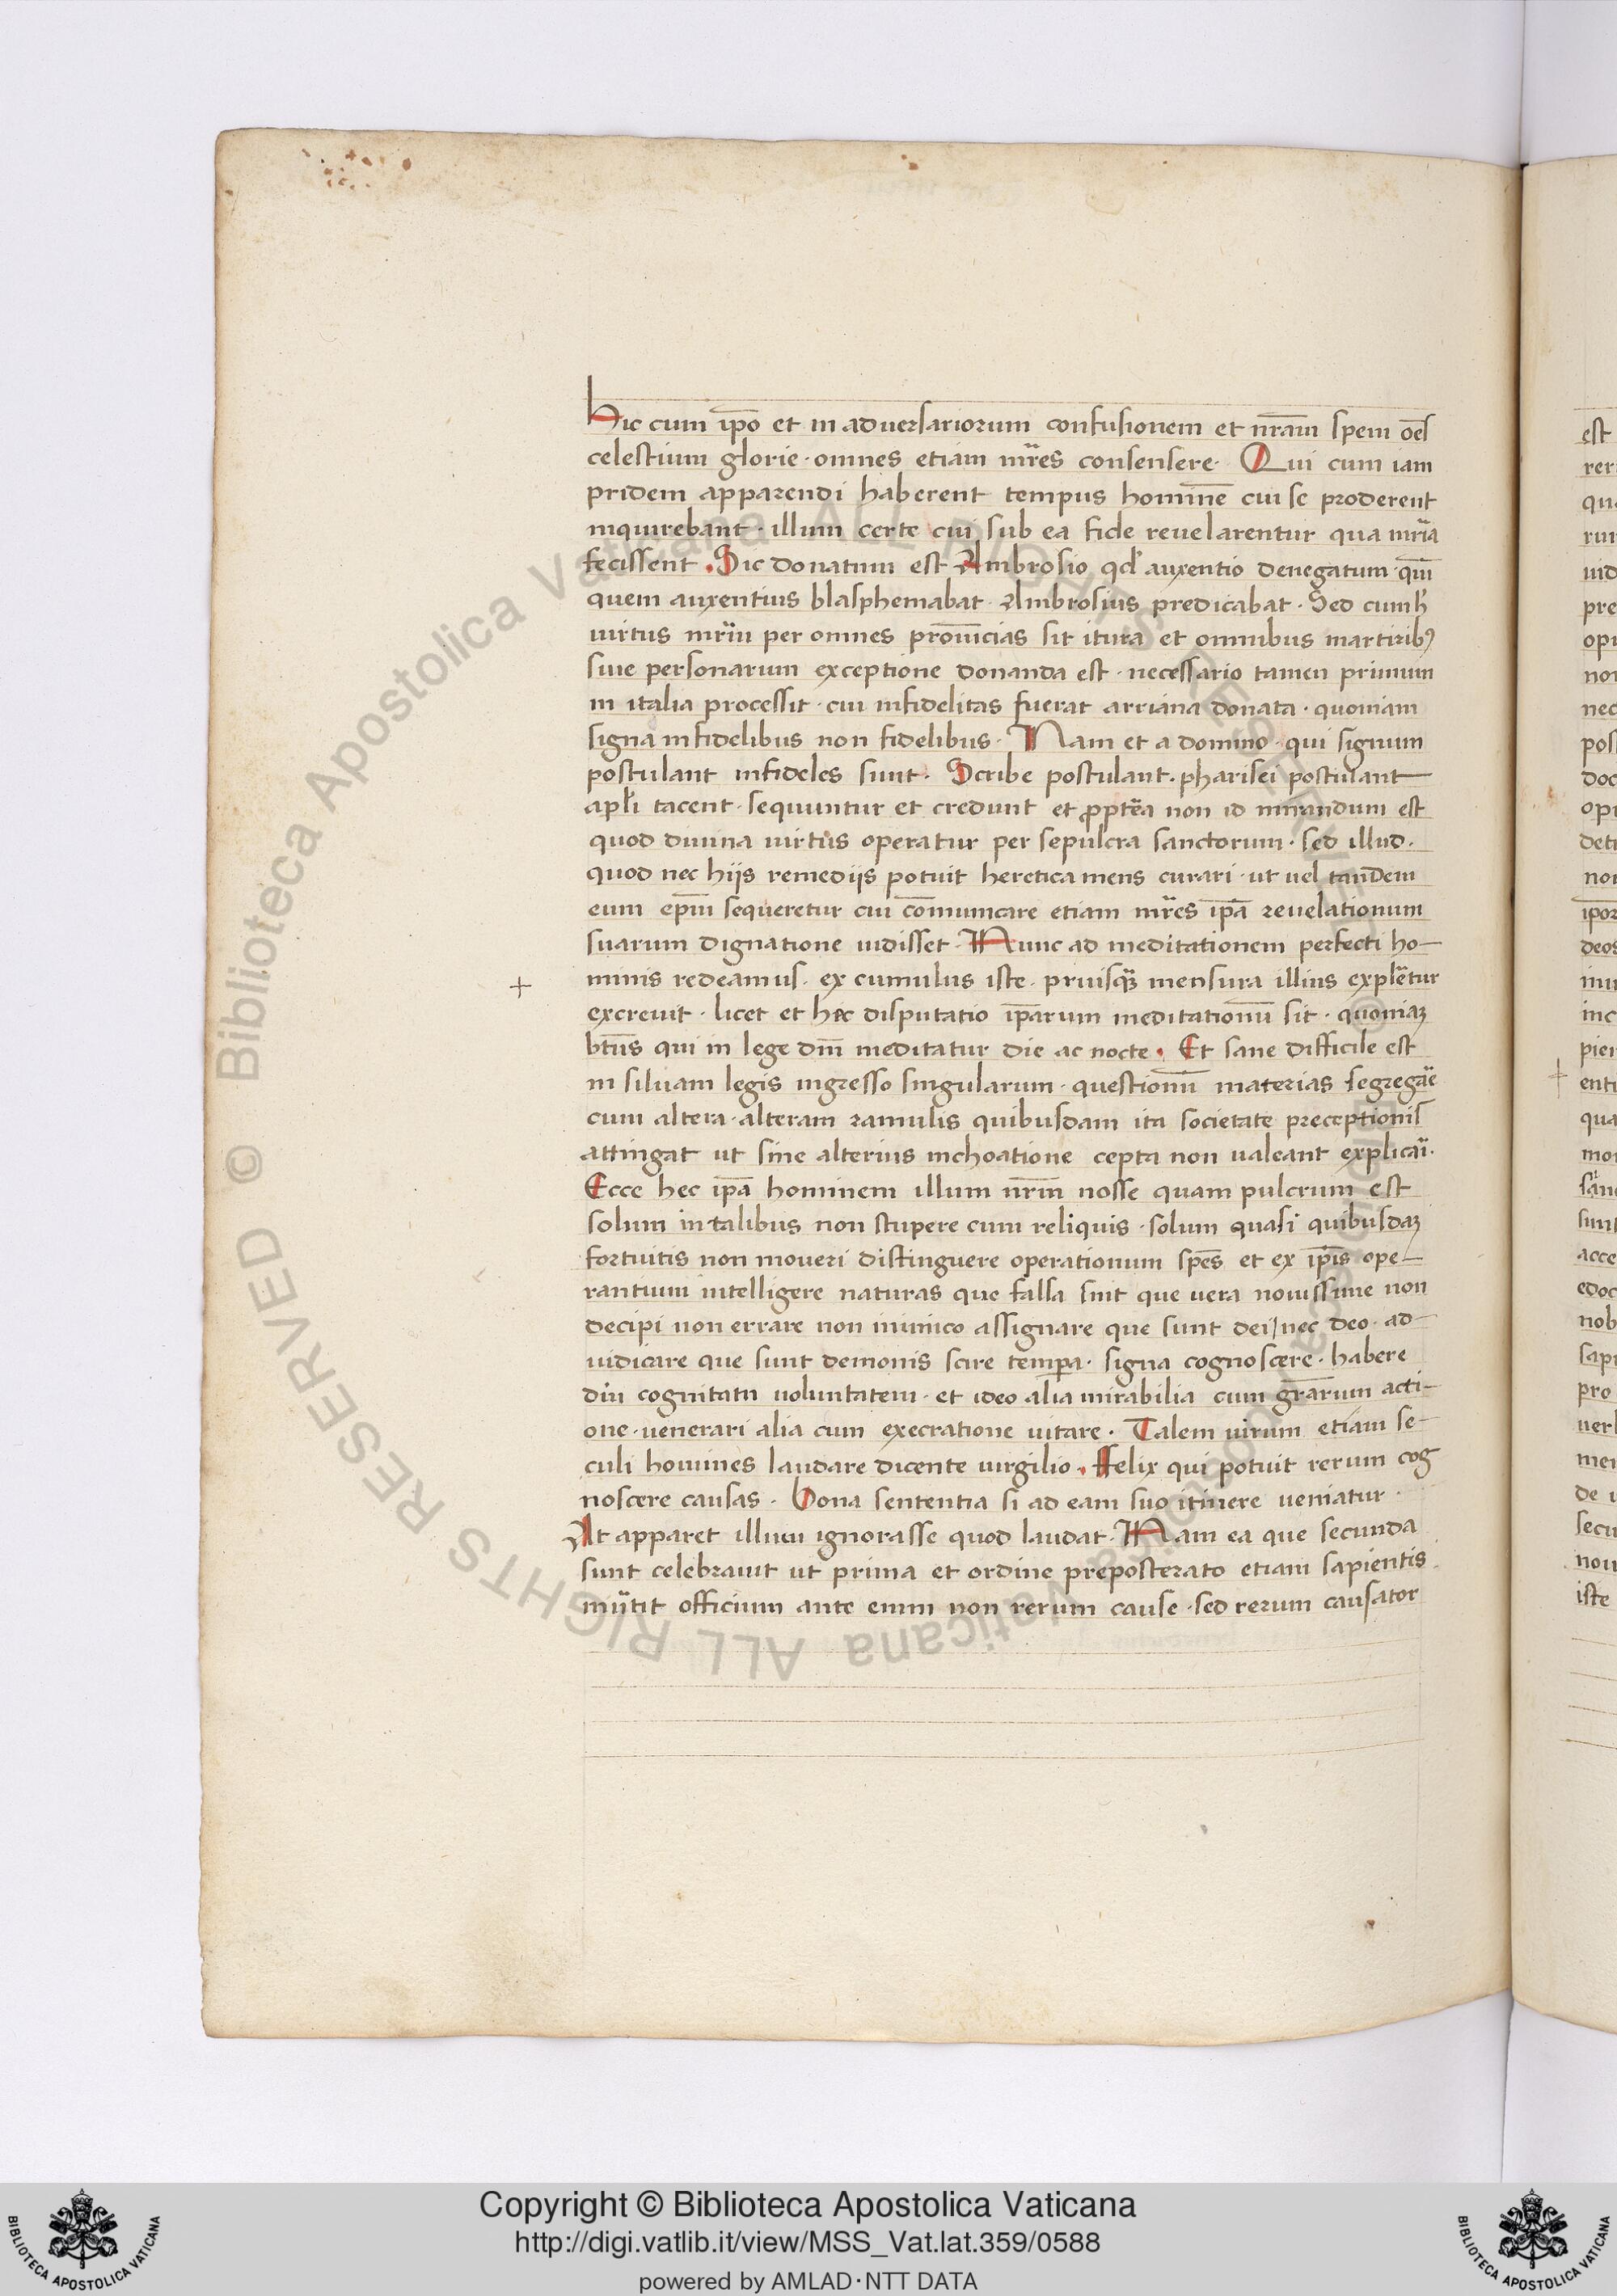 Hic cum ip̄o et in adversariorum confusionem et nr̄am spem oēs
celestium glorie · omnes etiam mr̄es consensere · Qui cum iam
pridem apparendi haberent tempus hominē cui se proderent
inquirebant · illum certe cui sub ea fide reuelarentur qua mr̄ia
fecissent · Sic donatum est Ambrosio qd̓ auxentio denegatum · qm̄
quem auxentius blasphemabat · Ambrosius predicabat · Sed cum h̓
uirtus mr̄iu per omnes prouīcias sit itura et omnibus martirib⁹
sine personarum exceptione donanda est · necessario tamen primum
in italia processit · cui infidelitas fuerat arriana donata · quoniam
signa infidelibus non fidelibus · Nam et a domino · qui signum
postulant infideles sunt · Scribe postulant · pharisei postulant
apl̓i tacent · sequuntur et credunt et ꝓpt̄ea non id mirandum est
quod diuina uirtus operatur per sepulcra sanctorum · sed illud ·
quod nec hijs remedijs potuit heretica mens curari · ut uel tandem
eum ep̄m sequeretur cui cōmunicare etiam mr̄es ip̄a reuelationum
suarum dignatione uidisset · Nunc ad meditationem perfecti ho-
minis redeamus · ex cumulus iste · priusq̄ mensura illius expletur
excreuit · licet et hec disputatio ip̄arum meditationū sit · quoniaꝫ
bt̄us qui in lege dn̄i meditatur die ac nocte · Et sane difficile est
in siluam legis ingresso singularum · questionū materias segregāe
cum altera · alteram ramulis quibusdam ita societate preceptionis
attingat ut sine alterius inchoatione cepta non ualeant explicāi ·
Ecce hec ip̄a hominem illum nr̄m nosse quam pulcrum est
solum in talibus non stupere cum reliquis · solum quasi quibusdaꝫ
fortuitis non moueri distinguere operationum sp̄es et ex ip̄is ope-
rantium intelligere naturas que falsa sint que uera nouissime non
decipi non errare non inimico assignare que sunt dei / nec deo · ad-
iudicare que sunt demonis scire temp̄a · signa cognoscere · habere
diu cognitam uoluntatem · et ideo alia mirabilia cum gr̄arum acti-
one · uenerari alia cum execratione uitare · Talem uirum etiam se-
culi homines laudare dicente uirgilio · Felix qui potuit rerum cog
noscere causas · Bona sententia si ad eam suo itinere ueniatur ·
At apparet illum ignorasse quod laudat · Nam ea que secunda
sunt celebrauit ut prima et ordine preposterato etiam sapientis
mūtit officium ante enim non rerum cause · sed rerum causator
+
est
iste
Copyright © Biblioteca Apostolica Vaticana
http://digi.vatlib.it/view/MSS_Vat.lat.359/0588
powered by AMLAD·NTT DATA
BIBLIOTECA APOSTOLICA VATICANA
BIBLIOTECA APOSTOLICA VATICANA
© Biblioteca Apostolica Vaticana ALL RIGHTS RESERVED
© Biblioteca Apostolica Vaticana ALL RIGHTS RESERVED